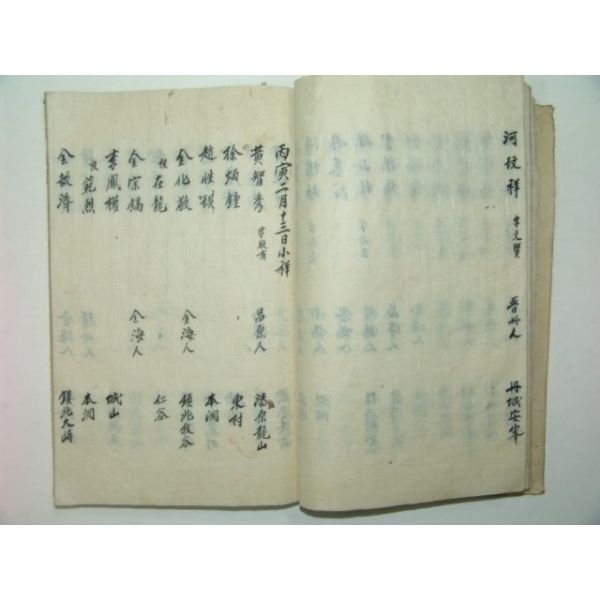 河紋祥 字文賢 晋州人 丹城安峯
丙寅二月十三日小祥
黄智秀 字敬有 昌原人 漆原龍山
徐炳鍾 東村
趙性禛 本洞
金化敬 金海人 鎮北牧谷
在龍 仁谷
金宗鎬 金海人
李鳳權 城山
範烈 本洞
金敏濟 鎮北大峙